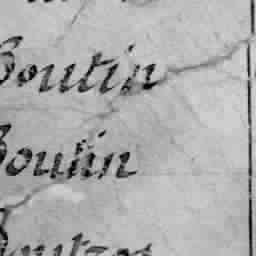 Boutin
Boutin